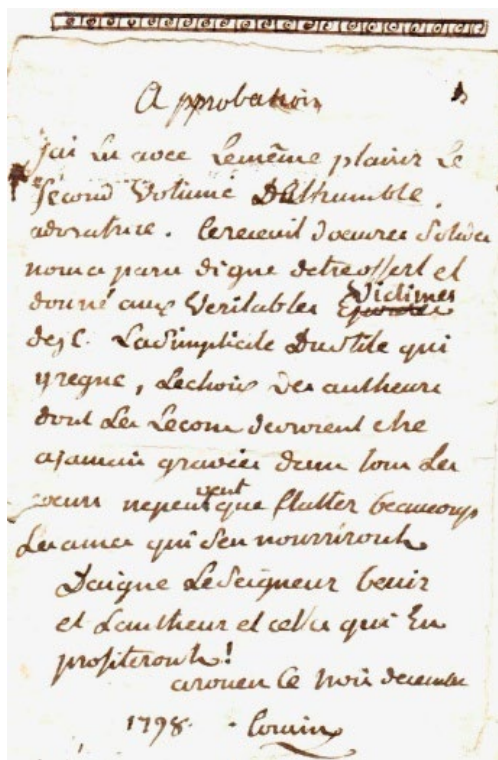 Approbation
j'ai lu avec Lemême plaisir Le
second Volume De l'humble
adoratrice. Cerecueil d'oeuvres Solides
nous a paru digne detre offert et
donné aux Veritables Epouses Victimes
de j. C. La Simplicité Du stile qui
y regne, Le choix des autheurs
dont Les Lecons devroient etre
a jamais gravées dans tous Les
coeurs ne peuvent que flatter beaucoup
Les ames qui s'en nourriront
Daigne Le Seigneur benir
et L'autheur et celles qui En
profiteront!
a rouen Ce decembre
1798.